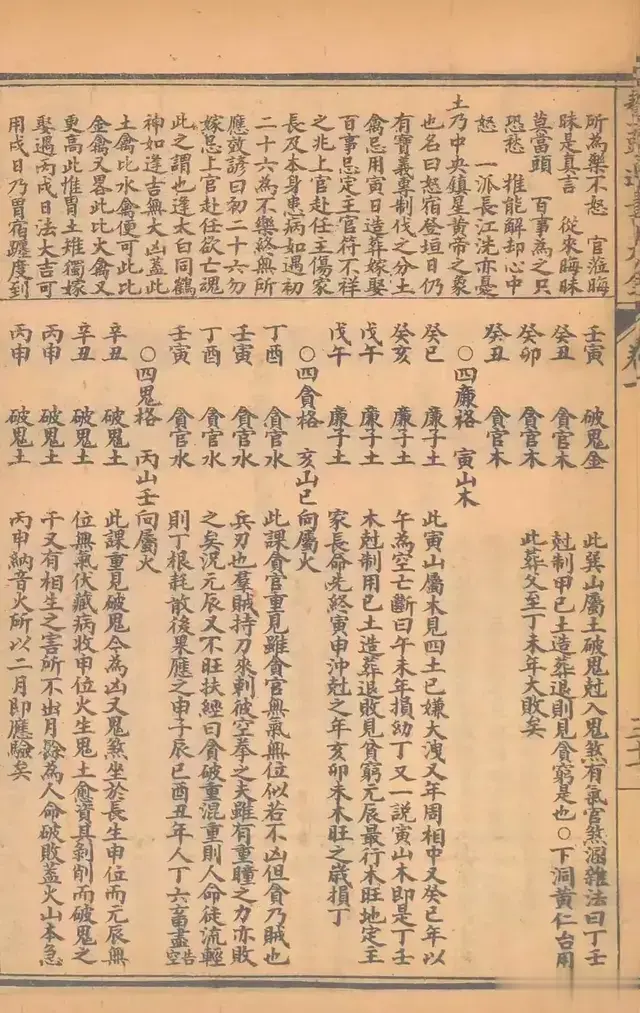 所為樂不怒 官涖晦
昧是真言 從來晦昧
莫當頭 百事為之只
恐愁 推能解却心中
怒 一派長江洗亦憂
土乃中央鎮星黃帝之象
也名曰怒宿登垣日仍
有寶義專制伐之分土
禽忌用寅日造葬嫁娶
百事忌定主官符不祥
之兆上官赴任主傷家
長及本身患病如遇初
二十六為不樂終無所
應效諺曰初二十六勿
嫁忌上官赴任欲亡魂
此之謂也逢太白同鶴
神如逢吉無大凶蓋此
土禽比水禽便可此比
金禽又畧此比火禽又
更高此惟胃土雉獨嫁
娶遇丙戌日法大吉可
用戌日乃胃宿躔度到
壬寅 破鬼金
癸丑 貪官木
癸卯 貪官木
癸丑 貪官木
此巽山屬土破鬼尅入鬼煞有氣官煞溷雜法曰丁壬
尅制甲已土造葬退則見貧窮是也○下洞黃仁台用
此葬父至丁未年大敗矣
○四廉格 寅山木
癸已 廉子土
癸亥 廉子土
戊午 廉子土
戊午 廉子土
此寅山屬木見四土已嫌大洩又年周相中又癸已年以
午為空亡斷曰午未年損幼丁又一說寅山木即是丁壬
木尅制用已土造葬退敗見貧窮元辰最行木旺地定主
家長命先終寅申沖尅之年亥卯未木旺之歲損丁
○四貪格 亥山已向屬火
丁酉 貪官水
壬寅 貪官水
丁酉 貪官水
壬寅 貪官水
此課貪官重見雖貪官無氣無位似若不凶但貪乃賊也
兵刃也羣賊持刀來刺彼空拳之夫雖有重瞳之力亦敗
之矣况元辰又不旺扶經曰貪破重混重則人命徒流輕
則丁根耗散後果應之申子辰已酉丑年人丁六畜盡空
○四鬼格 丙山壬向屬火
辛丑 破鬼土
辛丑 破鬼土
丙申 破鬼土
丙申 破鬼土
此課重見破鬼今為凶又鬼煞坐於長生申位而元辰無
位無氣伏藏病收申位火生鬼土愈資其剝削而破鬼之
干又有相生之害所不出月餘為人命破敗蓋火山本急
丙申納音火所以二月即應驗矣